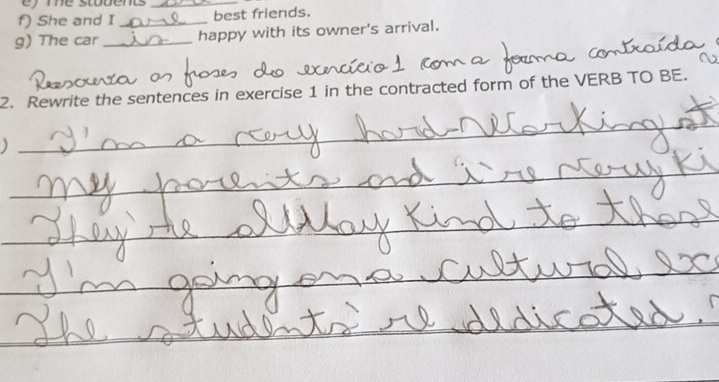 e) The students
f) She and I are best friends.
g) The car is happy with its owner's arrival.
Reescreva as frases do exercício 1 com a forma contraída
2. Rewrite the sentences in exercise 1 in the contracted form of the VERB TO BE.
) I'm a very hard-working st
my parents and i're very ki
They're allway kind to those
I'm going on a cultural exc
The students're dedicated.